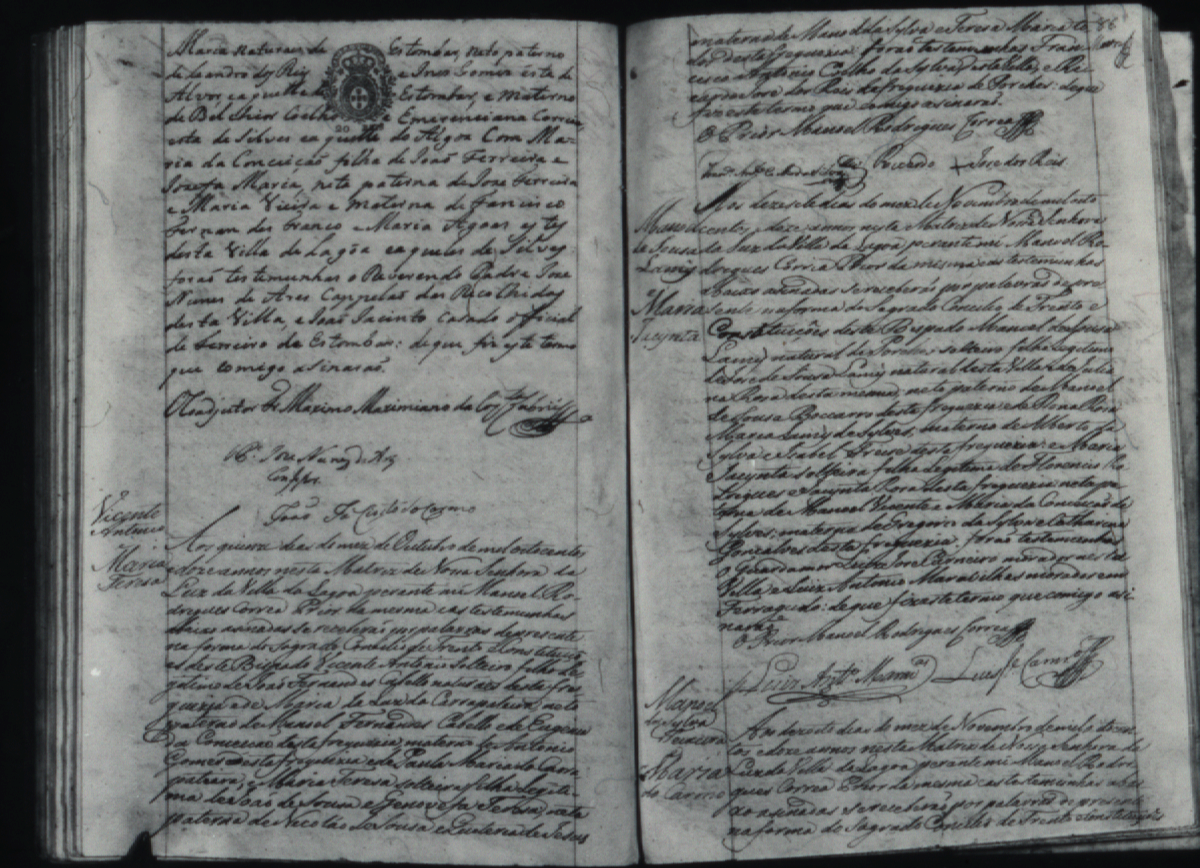 Maria naturaes de Estombar, neto paterno
de Leandro dos Reis e Ines Gomes esta de
Alvor, e aquelle de Estombar, e materno
de Belchior Coelho e Emerenciana Correa
esta de Silves e aquelle do Algoz Com Ma-
ria da Conceição filha de Joaõ Ferreira e
Jozefa Maria, neta paterna de Joze Ferreira
e Maria Vieira e materna de Francisco
Fernandes franco e Maria Agoas estes
desta Villa de Lagôa e aqueles de Silves
foraõ testemunhas o Reverendo Padre Joze
Nunes de Ares Cappelaõ dos Recolhidos
desta Villa, e Joaõ Jacinto casado official
de ferreiro de Estombar: de que fiz este termo
que comigo asinaraõ.
O Coadjutor Fr. Maximo Maximiano da
Pe. Joze Nunes de
Joaõ
Vicente
Antonio
e
Maria
Teresa
Aos quinze dias do mez de Outubro de mil oitocentos
e doze annos nesta Matriz de Nossa Senhora da
Luz da Villa da Lagoa perante mim Manuel Ro-
drigues Correa Prior da mesma e as testemunhas
abaixo asinadas se receberaõ por palavras de presente
na forma do Sagrado Concilio de Trento e Constituiçõ
es deste Bispado Vicente Antonio solteiro filho le
gitimo de Joaõ Fernandes Cabello naturaes desta fre
guezia e de Maria da Luz da Carrapateira, neto
paterno de Manuel Fernandes Cabello e de Eugenia
da Conceicaõ desta freguezia, materno de Antonio
Gomes desta freguezia e de Paula Maria da Carra
pateira, e Maria Teresa solteira filha Legiti-
ma de Joaõ de Sousa e Genovefa Teresa, neta
paterna de Nicoláo de Sousa e Quiteria de Jesus
materna de Manoel da Silva e Teresa Maria to
dos desta freguezia, foraõ testemunhas Fran
cisco Antonio Coelho da Silva desta Villa, e Ri
cardo Jose dos Reis da freguezia de Porches: de que
fiz este termo que comigo asinaraõ.
O Prior Manoel Rodrigues Correa
Ricardo + Jose dos Reis
Manoel
de Sousa
Lamy
e
Maria
Jacynta
Aos dezesete dias do mez de Novembro de mil oito
centos, e doze annos nesta Matriz de Nossa Senhora
da Luz da Villa da Lagoa perante mi Manoel Ro
drigues Correa Prior da mesma e as testemunhas
abaixo asinadas se receberaõ por palavras de pre
sente na forma do Sagrado Concilio de Trento e
Constituições deste Bispado Manoel de Sousa
Lamy natural de solteiro filho legitimo
de Sousa Lamy natural desta Villa e de Julia
na Rosa desta mesma, neto paterno de Manoel
de Sousa Boccarro desta freguezia e de Dona Rosa
Maria Lamy de Sylves, materno de Alberto da
Sylva e Isabel desta freguezia: e Maria
Jacynta solteira filha legitima de Florencio Ro
drigues e Jacynta Rosa desta freguezia, neta pa
terna de Manoel Vicente e Maria da Conceição de
Sylves, materna de Gregorio da Sylva e Catharina
Gonsalves desta freguezia. foraõ testemunhas
o Guardamor Luis Jose Carneiro morador nesta
Villa e Luis Antonio Maravilhas morador em
Ferragudo: de que fiz este termo que comigo asi
naraõ
O Prior Manoel Rodrigues Correa
Luis Anto. Luis Je. Carnro.
Manoel
da Sylva
Teixeira
e Maria
do Carmo
Aos dezoito dias do mez de Novembro de mil oitocen
tos e doze annos nesta Matriz de Nossa Senhora da
Luz da Villa da Lagoa perante mi Manoel Rodri
gues Correa Prior da mesma e as testemunhas aba
xo asinadas se receberaõ por palavras de presente
na forma do Sagrado Concilio de Trento e Constituições